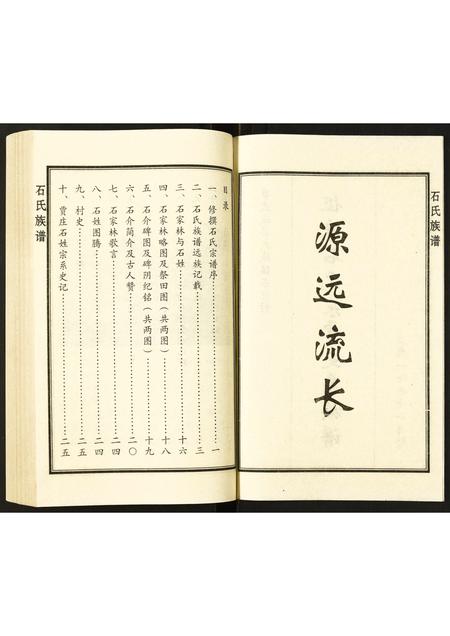 石氏族谱
源远流长
目录
一、修撰石氏宗谱序……一
二、石氏族谱远族记载……三
三、石家林与石姓……十六
四、石家林略图及祭田图（共两图）……十八
五、石介碑图及碑阴纪铭（共两图）……十九
六、石介简介及古人赞……二〇
七、石家林歌言……二四
八、石姓图腾……二四
九、村史……二五
十、贾庄石姓宗系史记……二五
石氏族谱